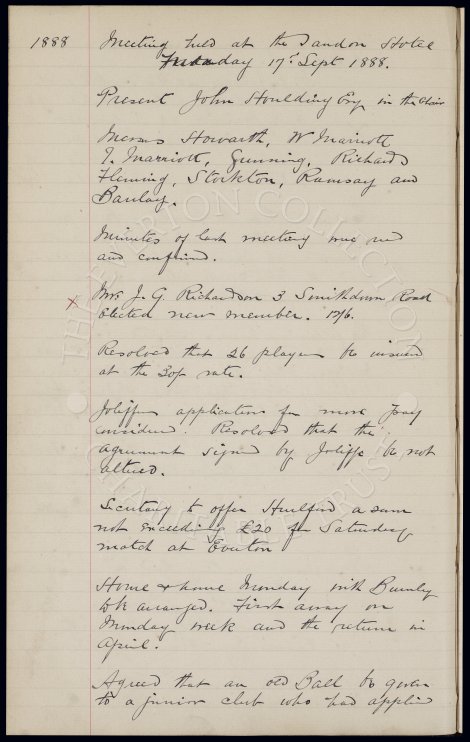 1888 Meeting held at the Sandon Hotel
Monday 17th Sept 1888.
Present John Houlding Esq in the Chair
Messrs Howarth, W Marriott
T. Marriott, Gunning, Richards
Fleming, Stockton, Ramsay and
Barclay.
Minutes of last meeting were read
and confirmed.
x Mr J. G. Richardson 3 Smithdown Road
elected new member. 12/6.
Resolved that 26 players be insured
at the 30/- rate.
Joliffe application for more pay
considered. Resolved that the
agreement signed by Joliffe be not
altered.
Secretary to offer Hurlford a sum
not exceeding £20 for Saturday
match at Everton
Home & home Monday with Burnley
to be arranged. First away on
Monday week and the return in
April.
Agreed that an old Ball be given
to a junior club who had applied
THE EVERTON COLLECTION
CHARITABLE TRUST